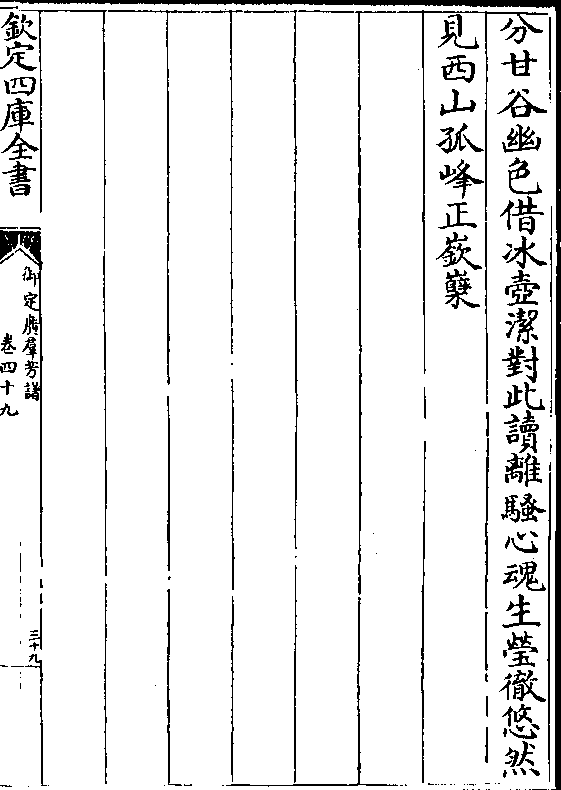 分甘谷幽色借冰壺潔對此讀離騷心魂生瑩徹悠然
見西山孤峰正嶔嶪
欽定四庫全書
御定廣羣芳譜
卷四十九
三十九